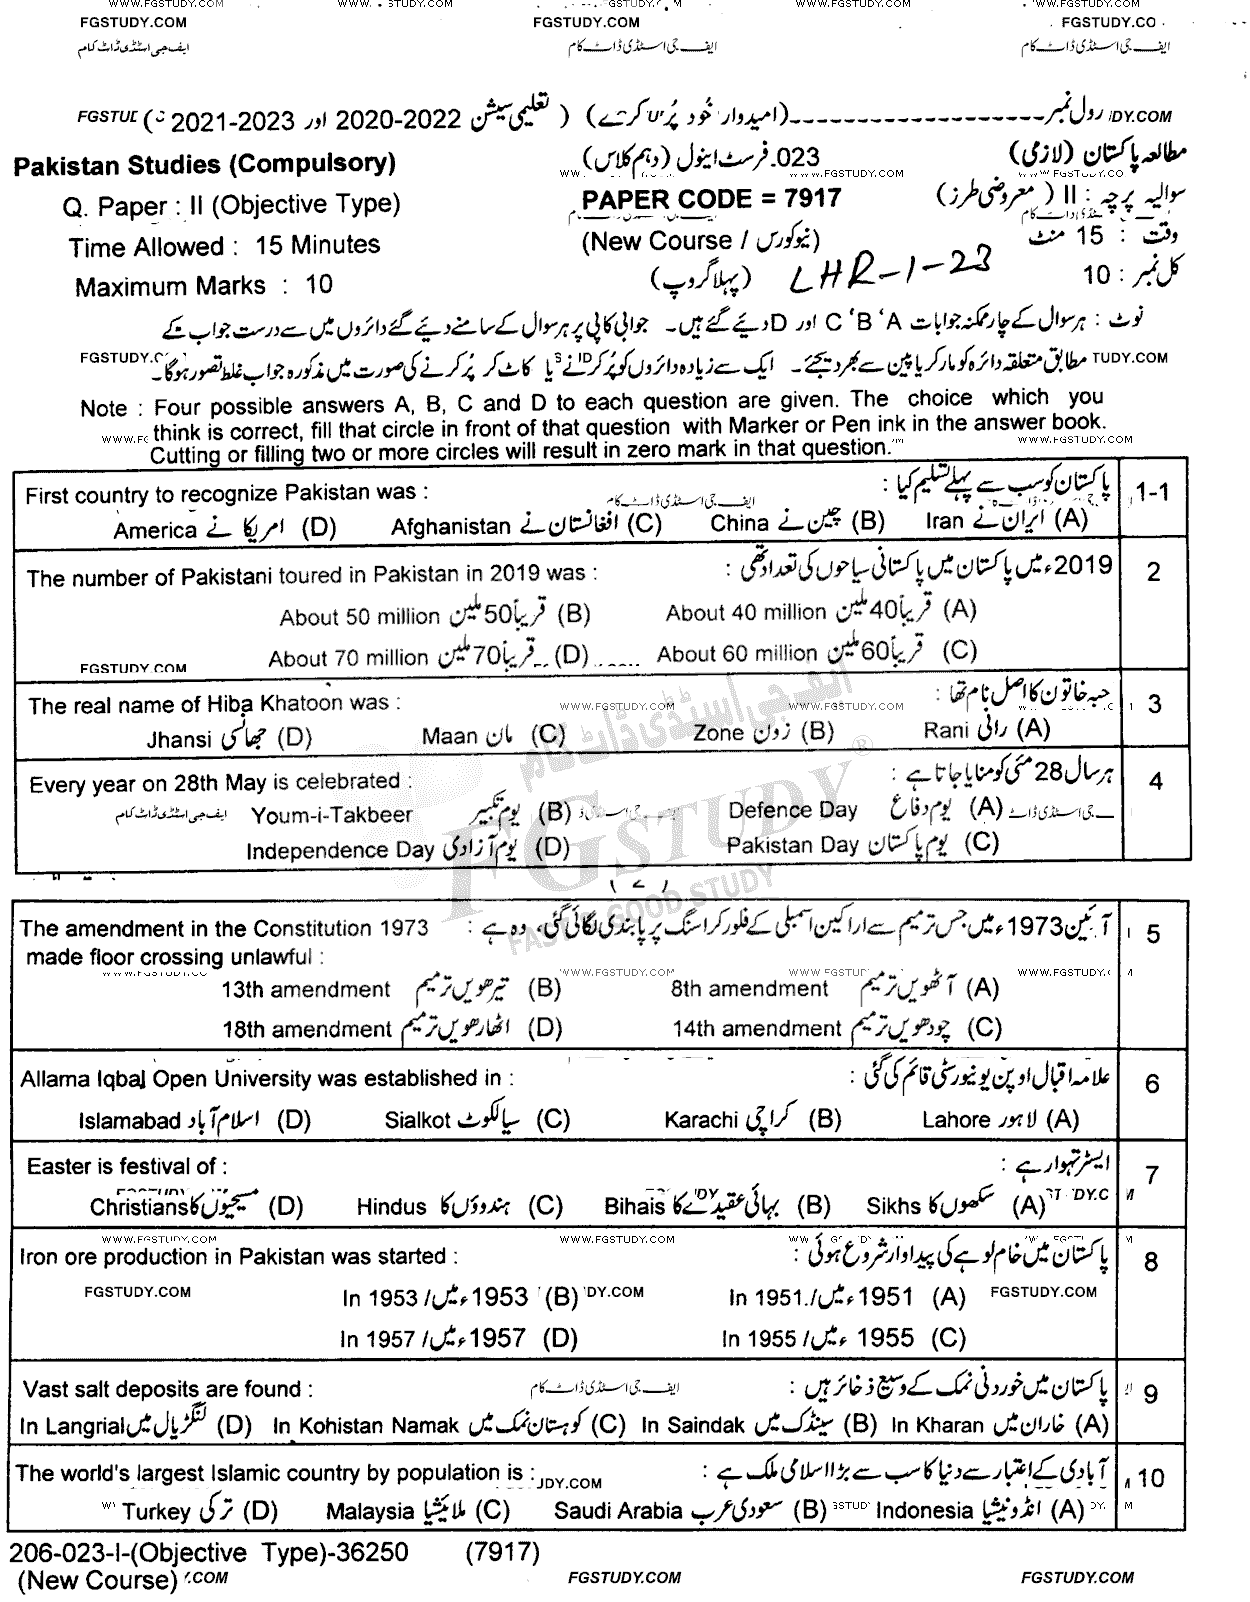 WWW.FGSTUDY.COM WWW. STUDY.COM FGSTUDY. M WWW.FGSTUDY.COM
FGSTUDY.COM FGSTUDY.COM FGSTUDY.CO
ایف جی اسٹڈی ڈاٹ کام ایف جی اسٹڈی ڈاٹ کام ایف جی اسٹڈی ڈاٹ کام
رول نمبر ---------------(امیدوار خود پُر کرے) (تعلیمی سیشن 2020-2022 اور 2021-2023
Pakistan Studies (Compulsory) 023.فرسٹ اینول (دہم کلاس) مطالعہ پاکستان (لازمی)
Q. Paper : II (Objective Type) PAPER CODE = 7917 سوالیہ پرچہ : II (معروضی طرز)
Time Allowed : 15 Minutes (New Course / نیو کورس) وقت : 15 منٹ
Maximum Marks : 10 (پہلا گروپ) LHR-1-23 کل نمبر : 10
نوٹ : ہر سوال کے چار ممکنہ جوابات A‘ B‘ C اور D دیئے گئے ہیں۔ جوابی کاپی پر ہر سوال کے سامنے دیئے گئے دائروں میں سے درست جواب کے
مطابق متعلقہ دائرہ کو مارکر یا پین سے بھر دیجئے۔ ایک سے زیادہ دائروں کو پُر کرنے یا کاٹ کر پُر کرنے کی صورت میں مذکورہ جواب غلط تصور ہوگا۔
Note : Four possible answers A, B, C and D to each question are given. The choice which you
think is correct, fill that circle in front of that question with Marker or Pen ink in the answer book.
Cutting or filling two or more circles will result in zero mark in that question.
First country to recognize Pakistan was : پاکستان کو سب سے پہلے تسلیم کیا : 1-1
America امریکا نے (D) Afghanistan افغانستان نے (C) China چین نے (B) Iran ایران نے (A)
The number of Pakistani toured in Pakistan in 2019 was : 2019ء میں پاکستان میں پاکستانی سیاحوں کی تعداد تھی : 2
About 50 million قریباً 50 ملین (B) About 40 million قریباً 40 ملین (A)
About 70 million قریباً 70 ملین (D) About 60 million قریباً 60 ملین (C)
FGSTUDY.COM
The real name of Hiba Khatoon was : حبہ خاتون کا اصل نام تھا : 3
Jhansi جھانسی (D) Maan مان (C) Zone زون (B) Rani رانی (A)
Every year on 28th May is celebrated : ہر سال 28 مئی کو منایا جاتا ہے : 4
Youm-i-Takbeer یوم تکبیر (B) Defence Day یوم دفاع (A)
Independence Day یوم آزادی (D) Pakistan Day یوم پاکستان (C)
ایف جی اسٹڈی ڈاٹ کام
FGSTUDY ®
FAST & GOOD STUDY
The amendment in the Constitution 1973 آئین 1973ء میں جس ترمیم سے اراکین اسمبلی کے فلور کراسنگ پر پابندی لگائی گئی، وہ ہے : 5
made floor crossing unlawful :
13th amendment تیرھویں ترمیم (B) 8th amendment آٹھویں ترمیم (A)
18th amendment اٹھارھویں ترمیم (D) 14th amendment چودھویں ترمیم (C)
Allama Iqbal Open University was established in : علامہ اقبال اوپن یونیورسٹی قائم کی گئی : 6
Islamabad اسلام آباد (D) Sialkot سیالکوٹ (C) Karachi کراچی (B) Lahore لاہور (A)
Easter is festival of : ایسٹر تہوار ہے : 7
Christians مسیحیوں کا (D) Hindus ہندوؤں کا (C) Bihais بہائی عقیدے کا (B) Sikhs سکھوں کا (A)
WWW.FGSTUDY.COM WWW.FGSTUDY.COM
Iron ore production in Pakistan was started : پاکستان میں خام لوہے کی پیداوار شروع ہوئی : 8
In 1953 / 1953ء میں (B) In 1951./ 1951ء میں (A)
In 1957 / 1957ء میں (D) In 1955 / 1955ء میں (C)
Vast salt deposits are found : پاکستان میں خوردنی نمک کے وسیع ذخائر ہیں : 9
In Langrial لنگڑیال میں (D) In Kohistan Namak کوہستان نمک میں (C) In Saindak سینڈک میں (B) In Kharan خاران میں (A)
The world's largest Islamic country by population is : آبادی کے اعتبار سے دنیا کا سب سے بڑا اسلامی ملک ہے : 10
Turkey ترکی (D) Malaysia ملائیشیا (C) Saudi Arabia سعودی عرب (B) Indonesia انڈونیشیا (A)
206-023-I-(Objective Type)-36250 (7917)
(New Course) .COM FGSTUDY.COM FGSTUDY.COM